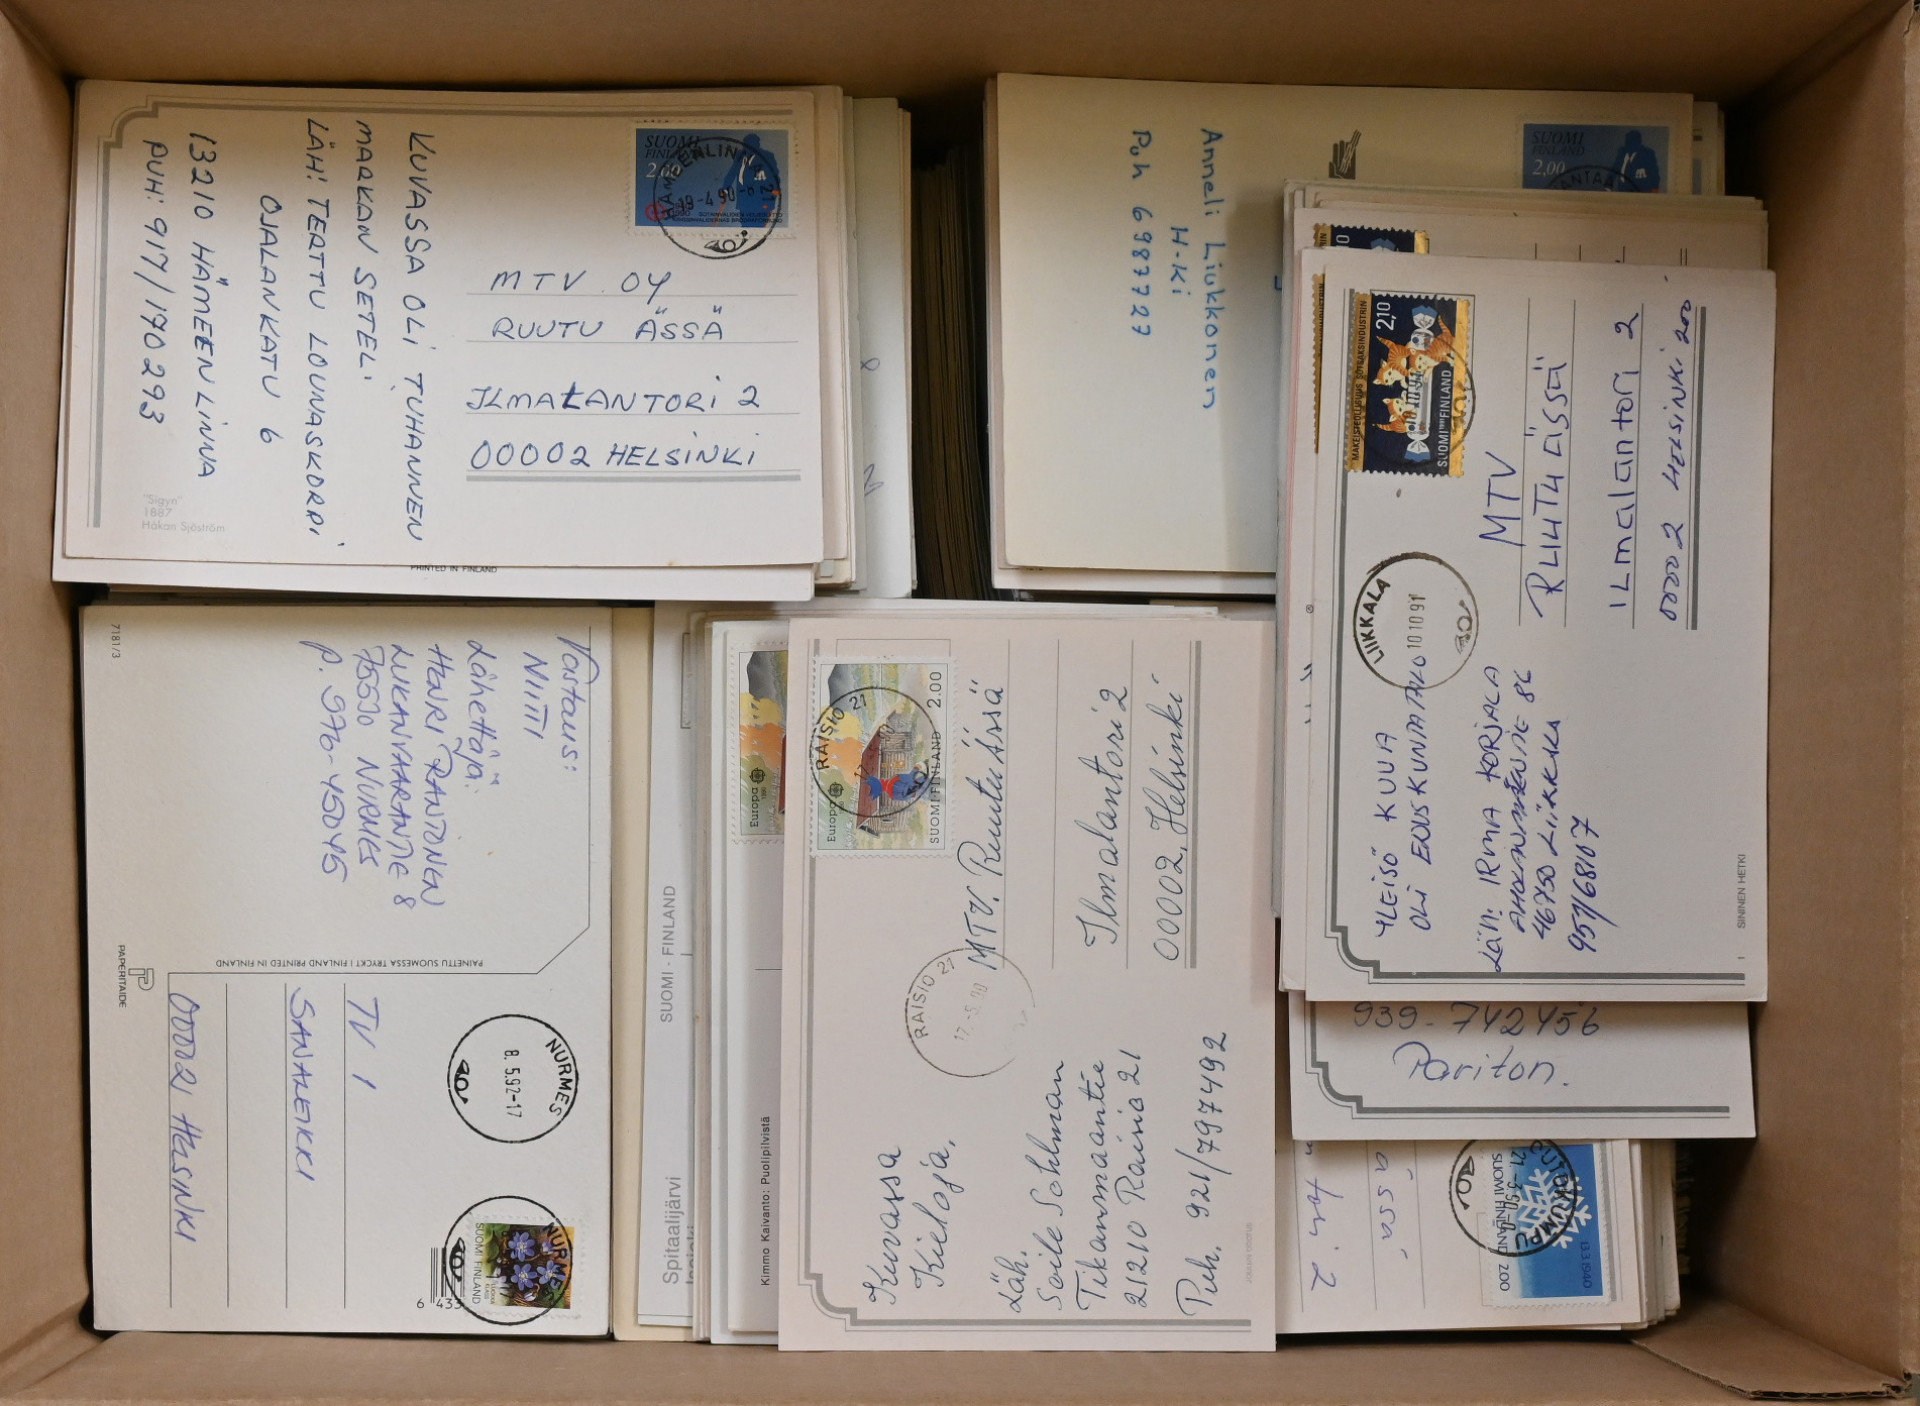 KUVASSA OLI TUHANNEN
MARKAN SETELI
LÄH: TERTTU LOUNASKORPI
OJALANKATU 6
13210 HÄMEENLINNA
PUH: 917/170 293
SUOMI
FINLAND
2.00
19.-4.90
MTV OY
RUUTU ÄSSÄ
ILMALANTORI 2
00002 HELSINKI
"Sigyn"
1887
Håkan Sjöström
PRINTED IN FINLAND
Anneli Liukkonen
H-KI
Puh 6987727
SUOMI
FINLAND
2,00
MAKEISTEOLLISUUS SÖTSAKSINDUSTRIN
2,10
SUOMI FINLAND
MTV
RUUTU ÄSSÄ
ILmalantori 2
00002 HELSINKI 200
LIIKKALA
10 10 91
YLEISÖ KUVA
OLI EDUSKUNTATALO
LÄH: IRMA KORJALA
46750 LIIKKALA
951/68107
SININEN HETKI
1
939-742456
Pariton.
ässä
2
21.-3.90
SUOMI FINLAND 2.00
13.3.1940
7181/3
Vastaus:
NIITTI
Lähettäjä:
HENRI RANTONEN
LUKANVAARANTIE 8
75530 NURMES
P. 976-45045
PAINETTU SUOMESSA TRYCKT I FINLAND PRINTED IN FINLAND
PAPERITAIDE
TV 1
SANALEIKKI
00021 HELSINKI
NURMES
8.5.92-17
NURMES
SUOMI FINLAND
6 433
SUOMI - FINLAND
Spitaalijärvi
Kimmo Kaivanto: Puolipilvistä
Europa
Europa
SUOMI-FINLAND
2.00
RAISIO 21
MTV. Ruutu Ässä
Ilmalantori 2
00002, Helsinki
RAISIO 21
17.-5.90
Kuvassa
Kieloja.
Läh.
Soile Sohlman
Tikanmaantie
21210 Raisio 21
Puh. 921/797492